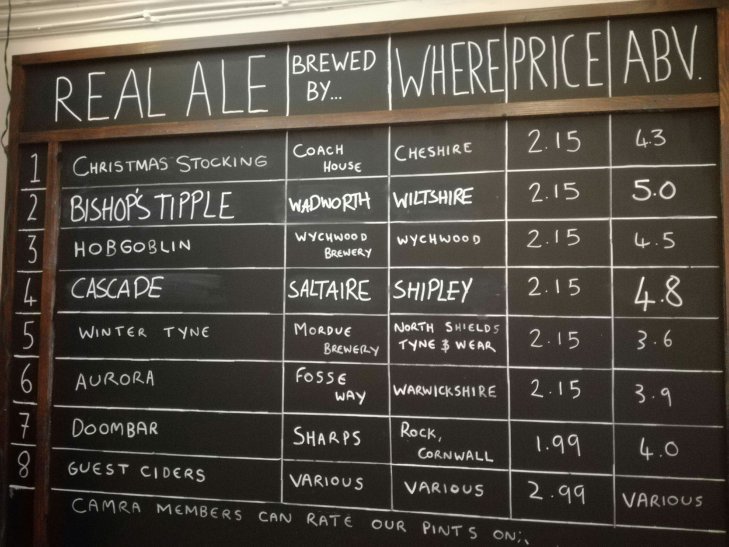 REAL ALE BREWED BY... WHERE PRICE ABV.
1 CHRISTMAS STOCKING COACH HOUSE CHESHIRE 2.15 43
2 BISHOP'S TIPPLE WADWORTH WILTSHIRE 2.15 5.0
3 HOBGOBLIN WYCHWOOD BREWERY WYCHWOOD 2.15 4.5
4 CASCADE SALTAIRE SHIPLEY 2.15 4.8
5 WINTER TYNE MORDUE BREWERY NORTH SHIELDS TYNE & WEAR 2.15 3.6
6 AURORA FOSSE WAY WARWICKSHIRE 2.15 3.9
7 DOOMBAR SHARPS ROCK, CORNWALL 1.99 4.0
8 GUEST CIDERS VARIOUS VARIOUS 2.99 VARIOUS
CAMRA MEMBERS CAN RATE OUR PINTS ON:.